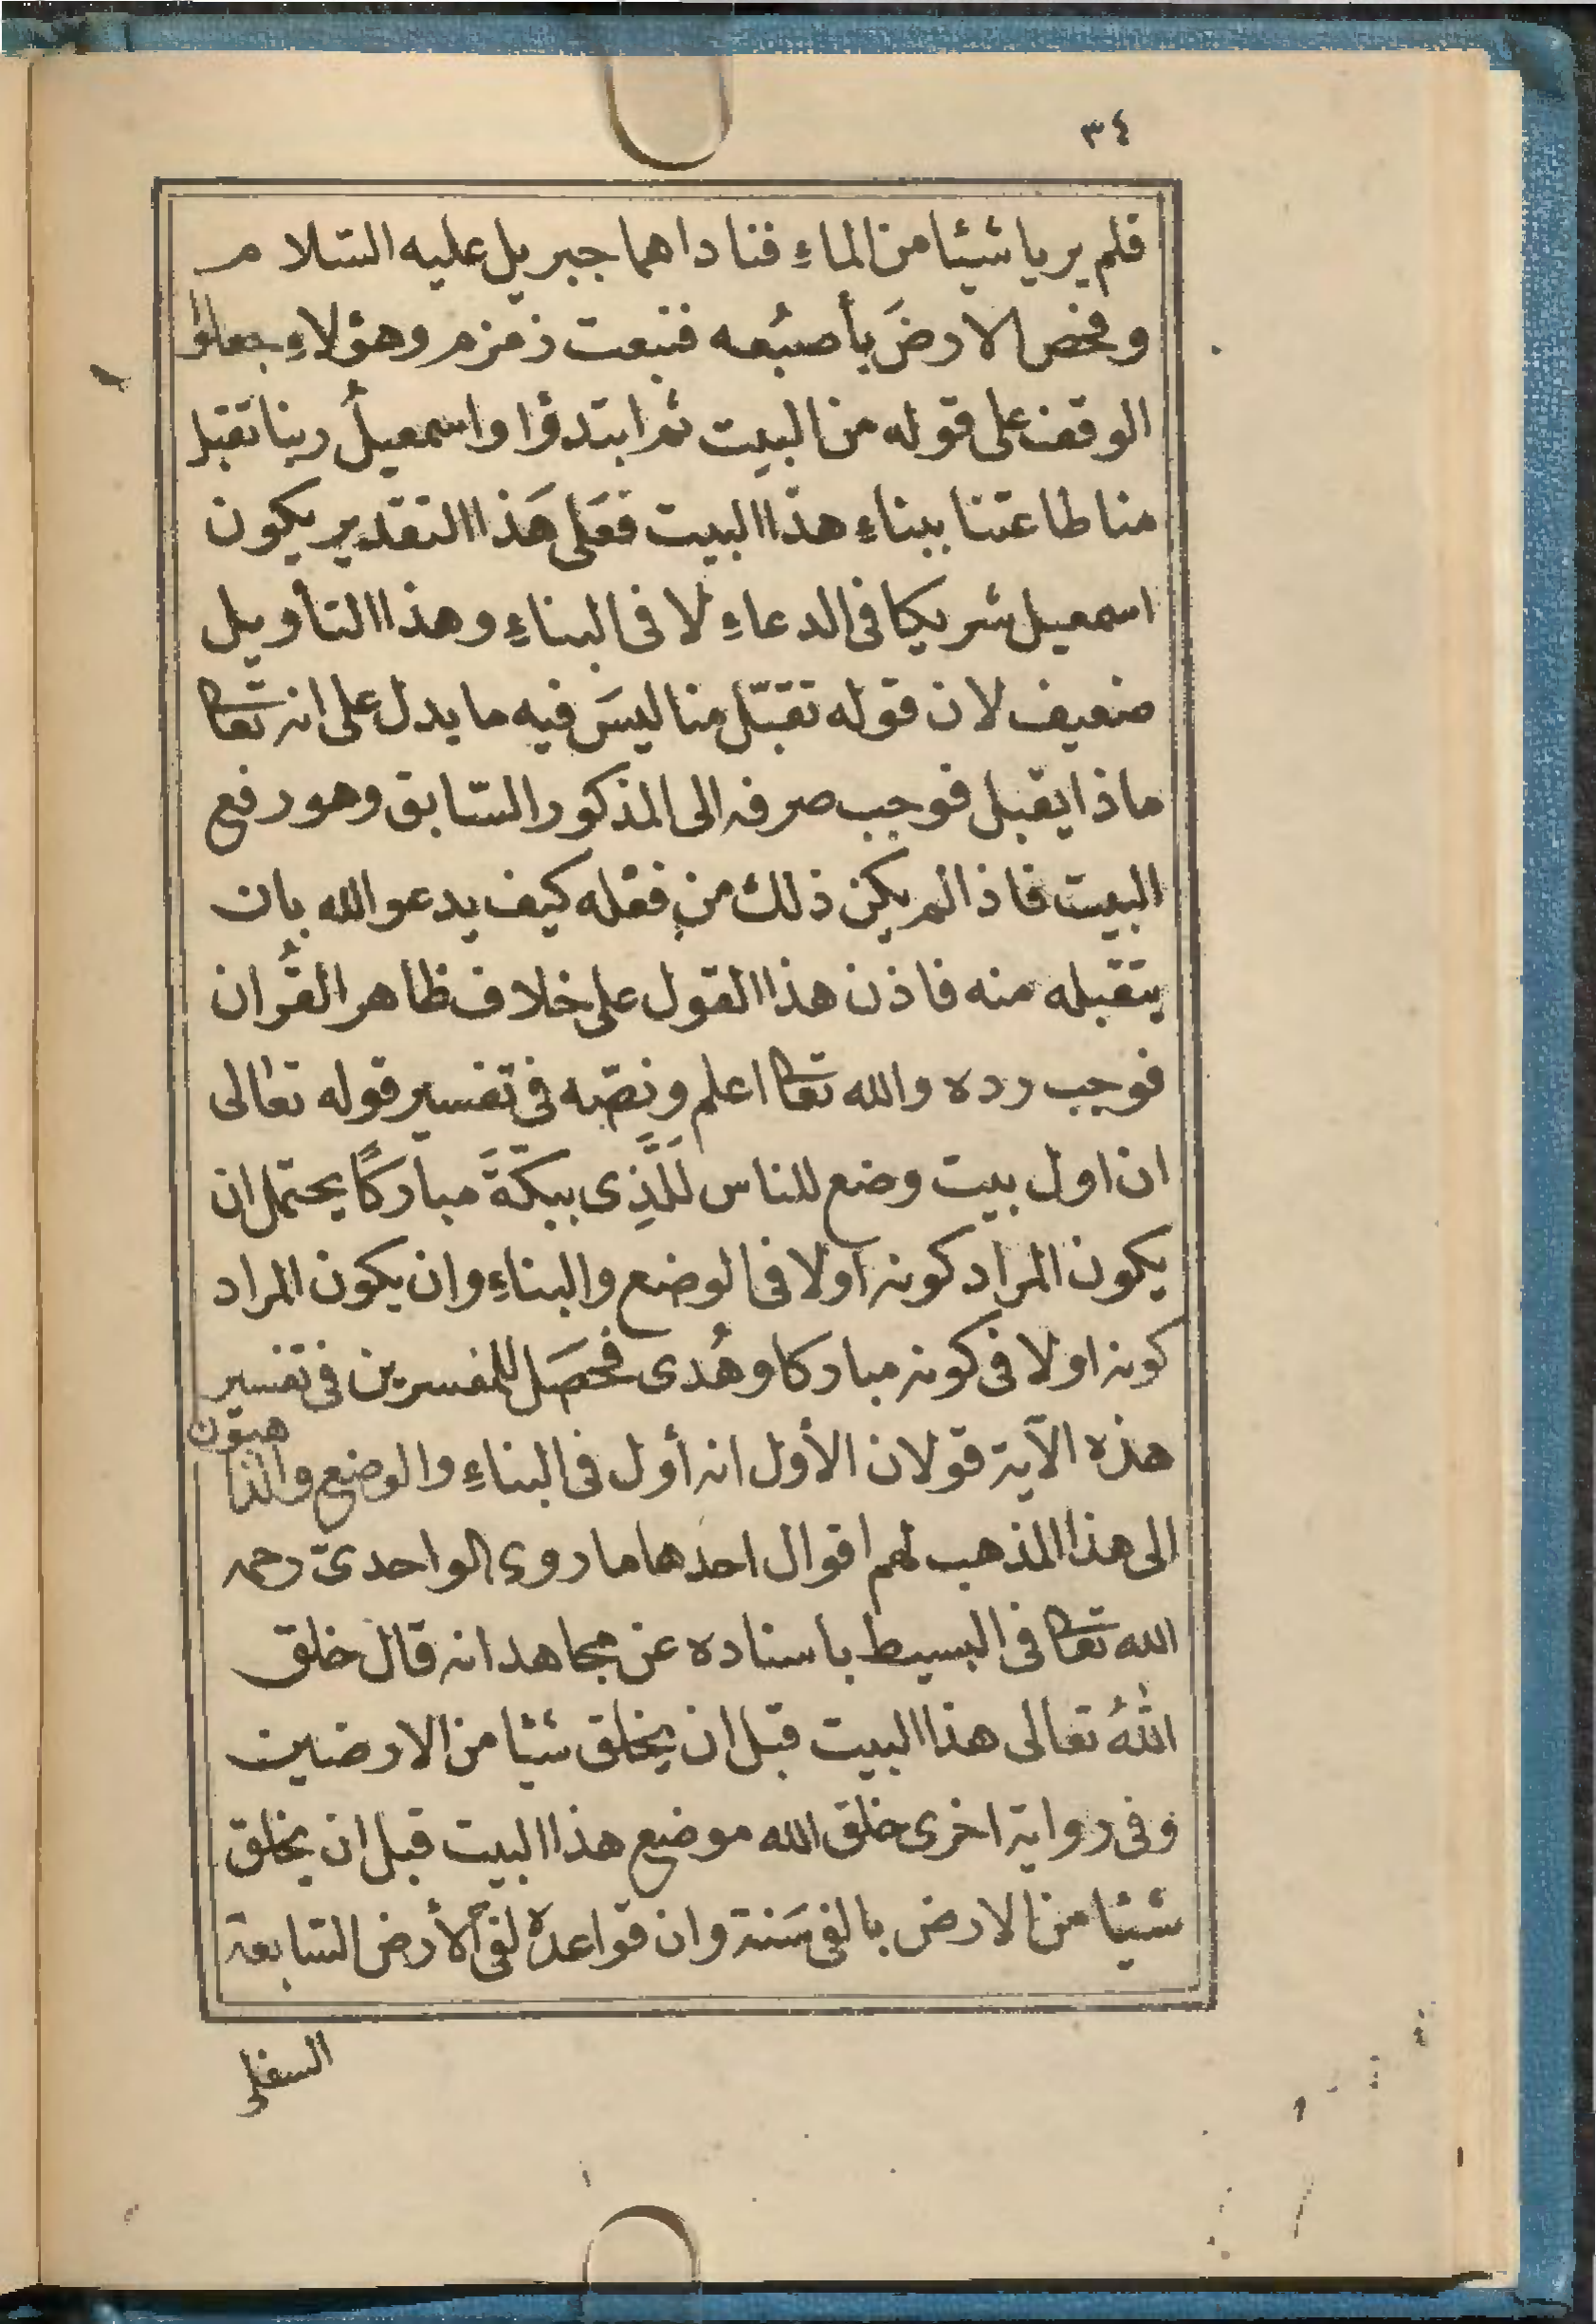 ٣٤
فلم يريا شيئا من الماءِ فناداهما جبريل عليه السّلام
وفحص الارضَ بأصبُعه فنبعت زمزم وهؤلاءِ جعلوا
الوقف على قوله من البيت ثم ابتدؤا واسمعيلُ ربنا تقبل
منا طاعتنا ببناءِ هذا البيت فعَلى هَذا التقدير يكون
اسمعيل شريكا فى الدعاءِ لا فى البناءِ وهذا التأويل
ضعيف لان قوله تقبّل منا ليسَ فيه ما يدل على انه تعا
ماذا يقبل فوجب صرفه الى المذكور السّابق وهو رفع
البيت فاذا لم يكن ذلك من فعله كيف يدعو الله بان
يتقبله منه فاذن هذا القول على خلاف ظاهر القُران
فوجب رده والله تعا اعلم ونصّه فى تفسير قوله تعالى
ان اول بيت وضع للناس لَلَّذِى ببكّةَ مباركًا يحتمل ان
يكون المراد كونه اولا فى الوضع والبناءِ وان يكون المراد
كونه اولا فى كونه مباركا وهُدى فحصَل للمفسرين فى تفسير
هذه الآية قولان الأول انه أول فى البناءِ والوضع والذاهبون
الى هذا المذهب لهم اقوال احدها ما روى الواحدىّ رحمه
الله تعا فى البسيط باسناده عن مجاهد انه قال خلق
اللهُ تعالى هذا البيت قبل ان يخلق شيئا من الارضين
وفى رواية اخرى خلق الله موضع هذا البيت قبل ان يخلق
شيئا من الارض بالفى سَنة وان قواعده لفى الأرض السّابعة
السفلى